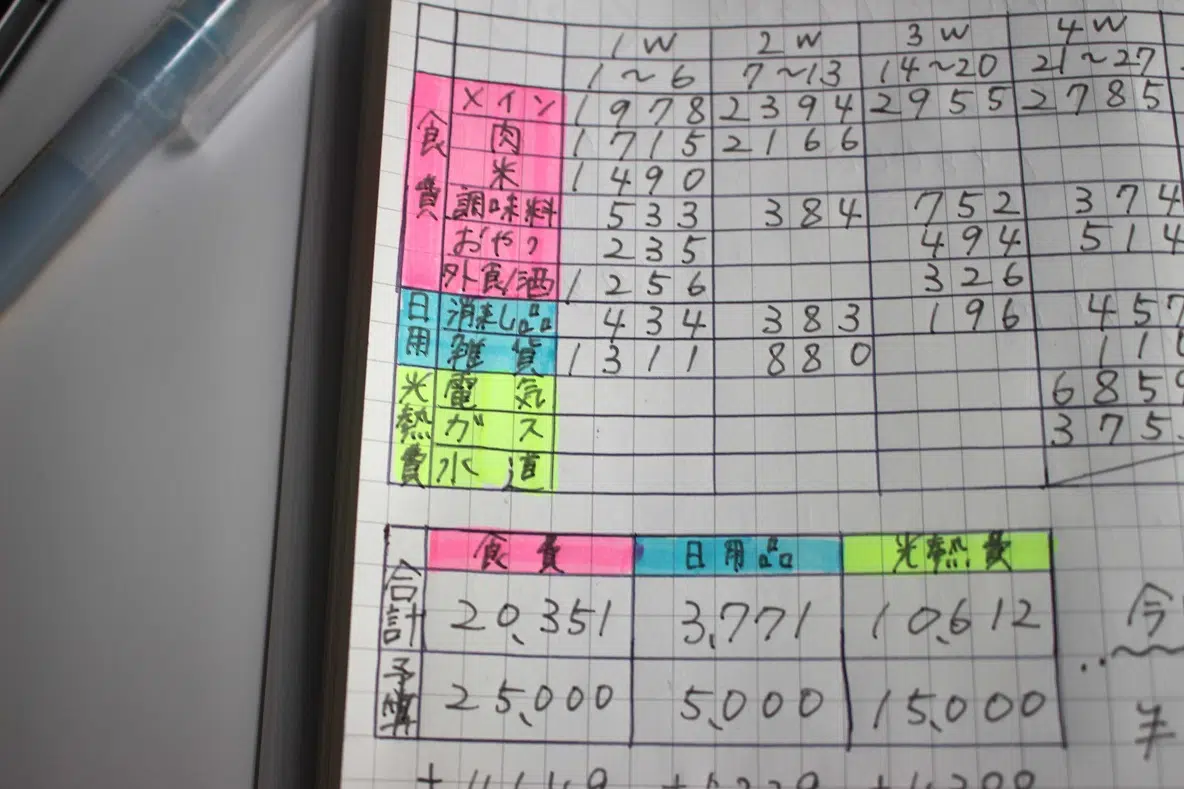 1W 2W 3W 4W
1～6 7～13 14～20 21～27
食費
メイン 1978 2394 2955 2785
肉 1715 2166
米 1490
調味料 533 384 752 374
おやつ 235 494 514
外食/酒 1256 326
日用
消耗品 434 383 196 457
雑貨 1311 880 110
光熱費
電気 6859
ガス 375
水道
食費 日用品 光熱費
合計 20,351 3,771 10,612
予算 25,000 5,000 15,000
今